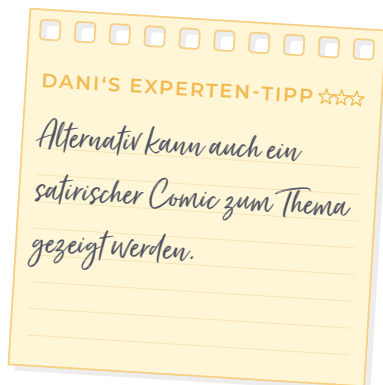 DANI‘S EXPERTEN-TIPP
Alternativ kann auch ein
satirischer Comic zum Thema
gezeigt werden.